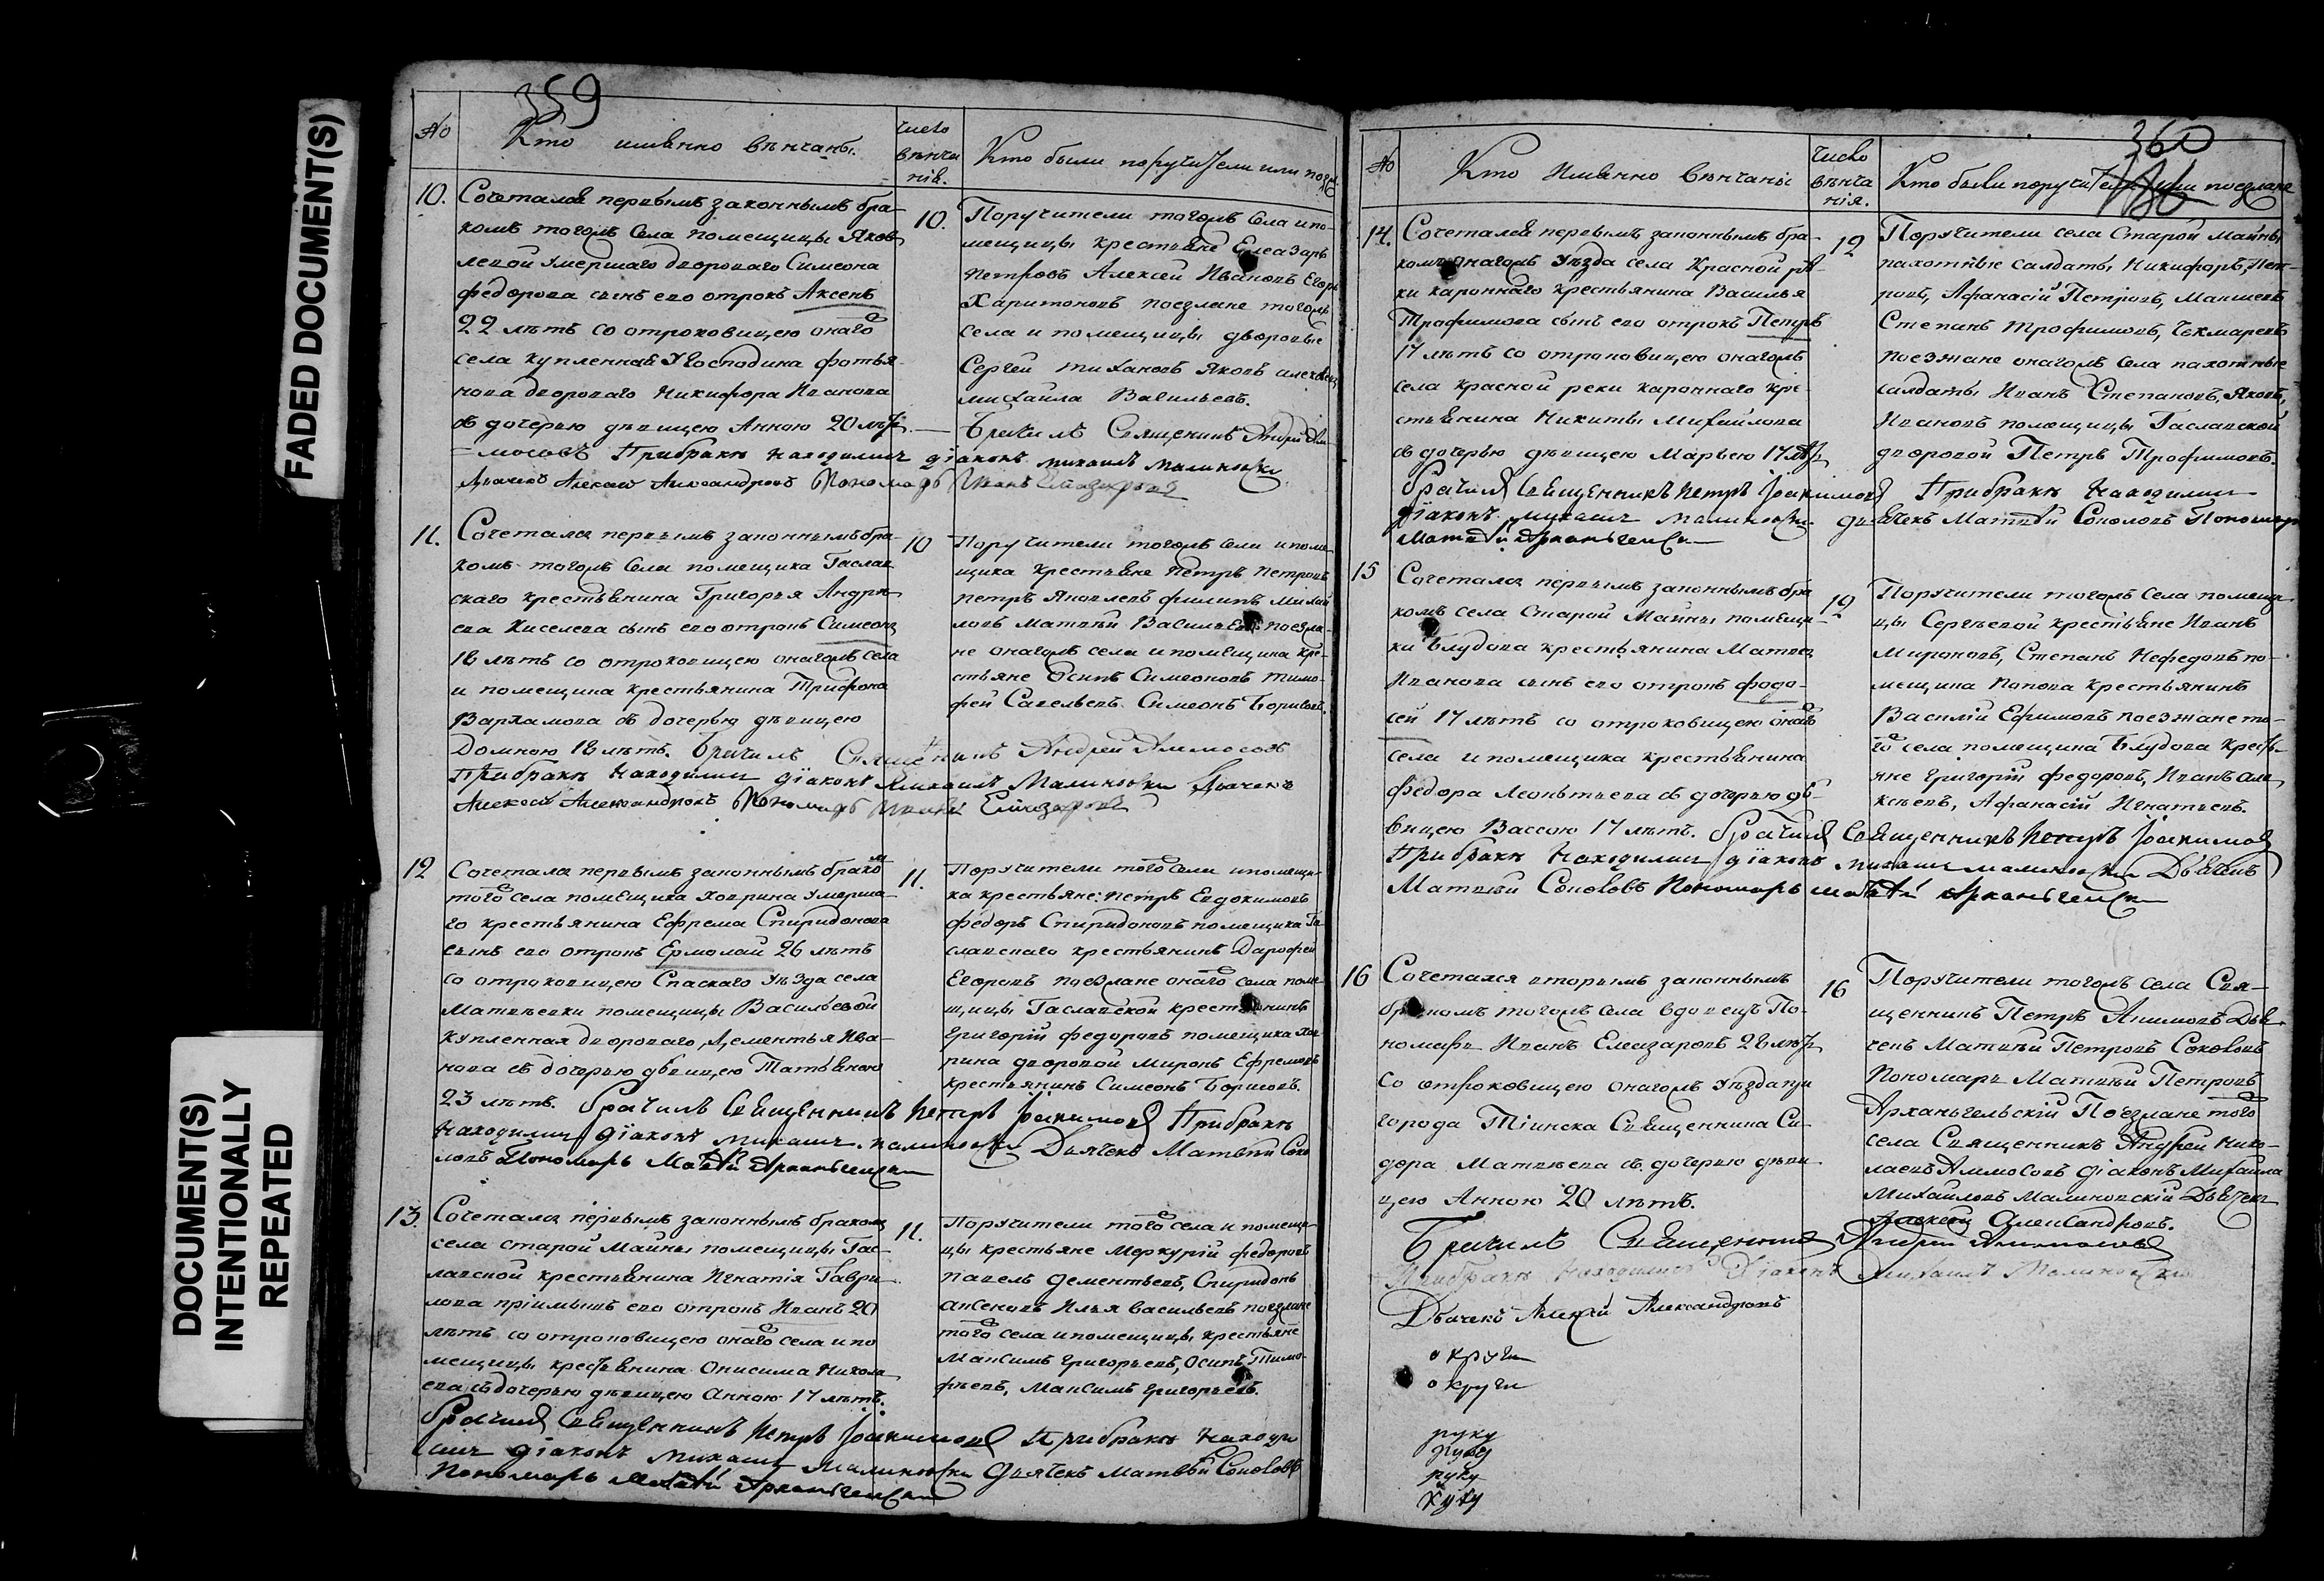 FADED DOCUMENT(S)
DOCUMENT(S)
INTENTIONALLY
REPEATED
359
№
Кто имянно вѣнчаны.
число
вѣнча
нія.
Кто были поручители или поѣз
10.
Сочетался первымъ законнымъ бра-
комъ тогожъ села помещицы Яков
левой умершаго двороваго Симеона
федорова сынъ его отрокъ Аксенъ
22 лѣтъ со отроковицею онаго
села купленная у Господина фотья-
нова двороваго Никифора Иванова
съ дочерью девицею Анною 20 лѣтъ
10.
Поручители тогожъ села и по-
мещицы крестьяне Елеазаръ
петровъ Алексей Ивановъ Егоръ
Харитоновъ поезжане тогожъ
села и помещицы дворовые
Сергей тихановъ Яковъ алексеевъ
михайла Васильевъ.
Бречилъ Священникъ Андрей Ам-
мосовъ При бракѣ находились діаконъ михаилъ малиновски
Дьячекъ Алексей Александровъ Пономарь Иванъ Елиазаровъ
11.
Сочетался первымъ законнымъ бра-
комъ тогожъ села помещика Гаслав
скаго крестьянина Григорья Андре
ева Киселева сынъ его отрокъ Симеонъ
18 лѣтъ со отроковицею онагожъ села
и помещика крестьянина Трифона
Вархамова съ дочерью девицею
Домною 18 лѣтъ. Бречилъ Священникъ Андрей Аммосовъ
При бракѣ находились діаконъ Михаилъ Малиновски Дьячекъ
Алексей Александровъ Пономарь Иванъ Елиазаровъ
10
Поручители тогожъ села и поме
щика крестьяне петръ петровъ
петръ Яковлевъ филипъ михай
ловъ матвѣй Васильевъ поезжа-
не онагожъ села и помещика кре-
стьяне Осипъ Симеоновъ тимо-
фей Савельевъ Симеонъ Борисовъ.
12
Сочетался первымъ законнымъ браком
того села помещика Ховрина умерша-
го крестьянина Ефрема Спиридонова
сынъ его отрокъ Ермолай 26 лѣтъ
со отроковицею Спаскаго уѣзда села
Матвеевки помещицы Васильевой
купленная двороваго Дементья Ива-
нова съ дочерью девицею Татьяною
23 лѣтъ. Брачилъ Священникъ петръ Іоакимовъ При бракѣ
находились діаконъ михаилъ малиновски Дьячекъ Матвѣй Соко
ловъ Пономарь Матвѣй Архангельски
11.
Поручители того села и помещи-
ка крестьяне: петръ Евдокимовъ
федоръ Спиридоновъ помещика Га
славскаго крестьянинъ Дарофей
Егоровъ поезжане онаго села поме
щицы Гаславской крестьянинъ
Григорій федоровъ помещика Хов
рина дворовой миронъ Ефремовъ
крестьянинъ Симеонъ Борисовъ.
13.
Сочетался первымъ законнымъ бракомъ
села старой Майны помещицы Гас-
лавской крестьянина Игнатія Гаври
лова пріимышъ его отрокъ Иванъ 20
лѣтъ со отроковицею онаго села и по
мещицы крестьянина Онисима Никола
ева съ дочерью девицею Анною 17 лѣтъ.
Брачилъ Священникъ петръ Іоакимовъ При бракѣ находи
лись діаконъ михаилъ малиновски Дьячекъ Матвѣй Соколовъ
Пономарь Матвѣй Архангельски
11.
Поручители того села и помещи-
цы крестьяне Меркурій федоровъ
павелъ дементьевъ, Спиридонъ
аксеновъ Илья васильевъ поезжане
того села и помещицы крестьяне
максимъ григорьевъ, осипъ Тимо-
феевъ, Максимъ григорьевъ.
360
№
Кто Имянно вѣнчаны
число
вѣнча
нія.
Кто были поручители или поезжане
14.
Сочетался первымъ законнымъ бра-
комъ онагожъ уѣзда села Красной рѣ-
ки кароннаго крестьянина Василья
Трофимова сынъ его отрокъ Петръ
17 лѣтъ со отроковицею онагожъ
села красной реки кароннаго кре-
стьянина Никиты Михайлова
съ дочерью девицею Марьею 17 лѣтъ
Брачилъ Священникъ петръ Іоакимовъ При бракѣ находились
діаконъ михаилъ малиновски дьячекъ Матвѣй Соколовъ Пономарь
Матвѣй Архангельски
12
Поручители села Старой Майны
пахотные салдаты Никифоръ Пет-
ровъ, Афанасій Петровъ, Макшевъ
Степанъ трофимовъ, Чекмаревъ
поезжане онагожъ села пахотные
салдаты Иванъ Степановъ, Яковъ
Ивановъ помещицы Гаславской
дворовой Петръ Трофимовъ.
15
Сочетался первымъ законнымъ бра
комъ села Старой Майны помещи-
ка Блудова крестьянина Матвея
Иванова сынъ его отрокъ фодо-
сей 17 лѣтъ со отроковицею онаго
села и помещика крестьянина
федора Леонтьева съ дочерью дѣ-
вицею Вассою 17 лѣтъ. Брачилъ Священникъ петръ Іоакимовъ
При бракѣ находились діаконъ михаилъ малиновски Дьячекъ
Матвѣй Соколовъ Пономарь матвѣй Архангельски
12
Поручители тогожъ села помещи-
цы Сергѣевой крестьяне Иванъ
Мироновъ, Степанъ Нефедовъ по-
мещика Попова крестьянинъ
Василій Ефимовъ поезжане то-
го села помещика Блудова кресть-
яне григорій федоровъ, Иванъ але
ксѣевъ, Афанасій Игнатьевъ.
16
Сочетался вторымъ законнымъ
бракомъ тогожъ села вдовецъ По-
номарь Иванъ Елеазаровъ 28 лѣтъ
со отроковицею онагожъ уѣзда при
города Тіинска Священника Си-
дора Матвеева съ дочерью деви
цею Анною 20 лѣтъ.
Бречилъ Священникъ Андрей Аммосовъ
При бракѣ находились Діаконъ Михаилъ Малиновски
Дьячекъ Алексей Александровъ
16
Поручители тогожъ села Свя-
щенникъ Петръ Акимовъ Дья
чекъ Матвѣй Петровъ Соколовъ
Пономарь Матвѣй Петровъ
Архангельскій Поезжане того
села Священникъ Андрей Нико-
лаевъ Аммосовъ діаконъ Михайла
Михайловъ Малиновскій Дьячекъ
Алексей Александровъ.
округи
округи
руку
руку
руку